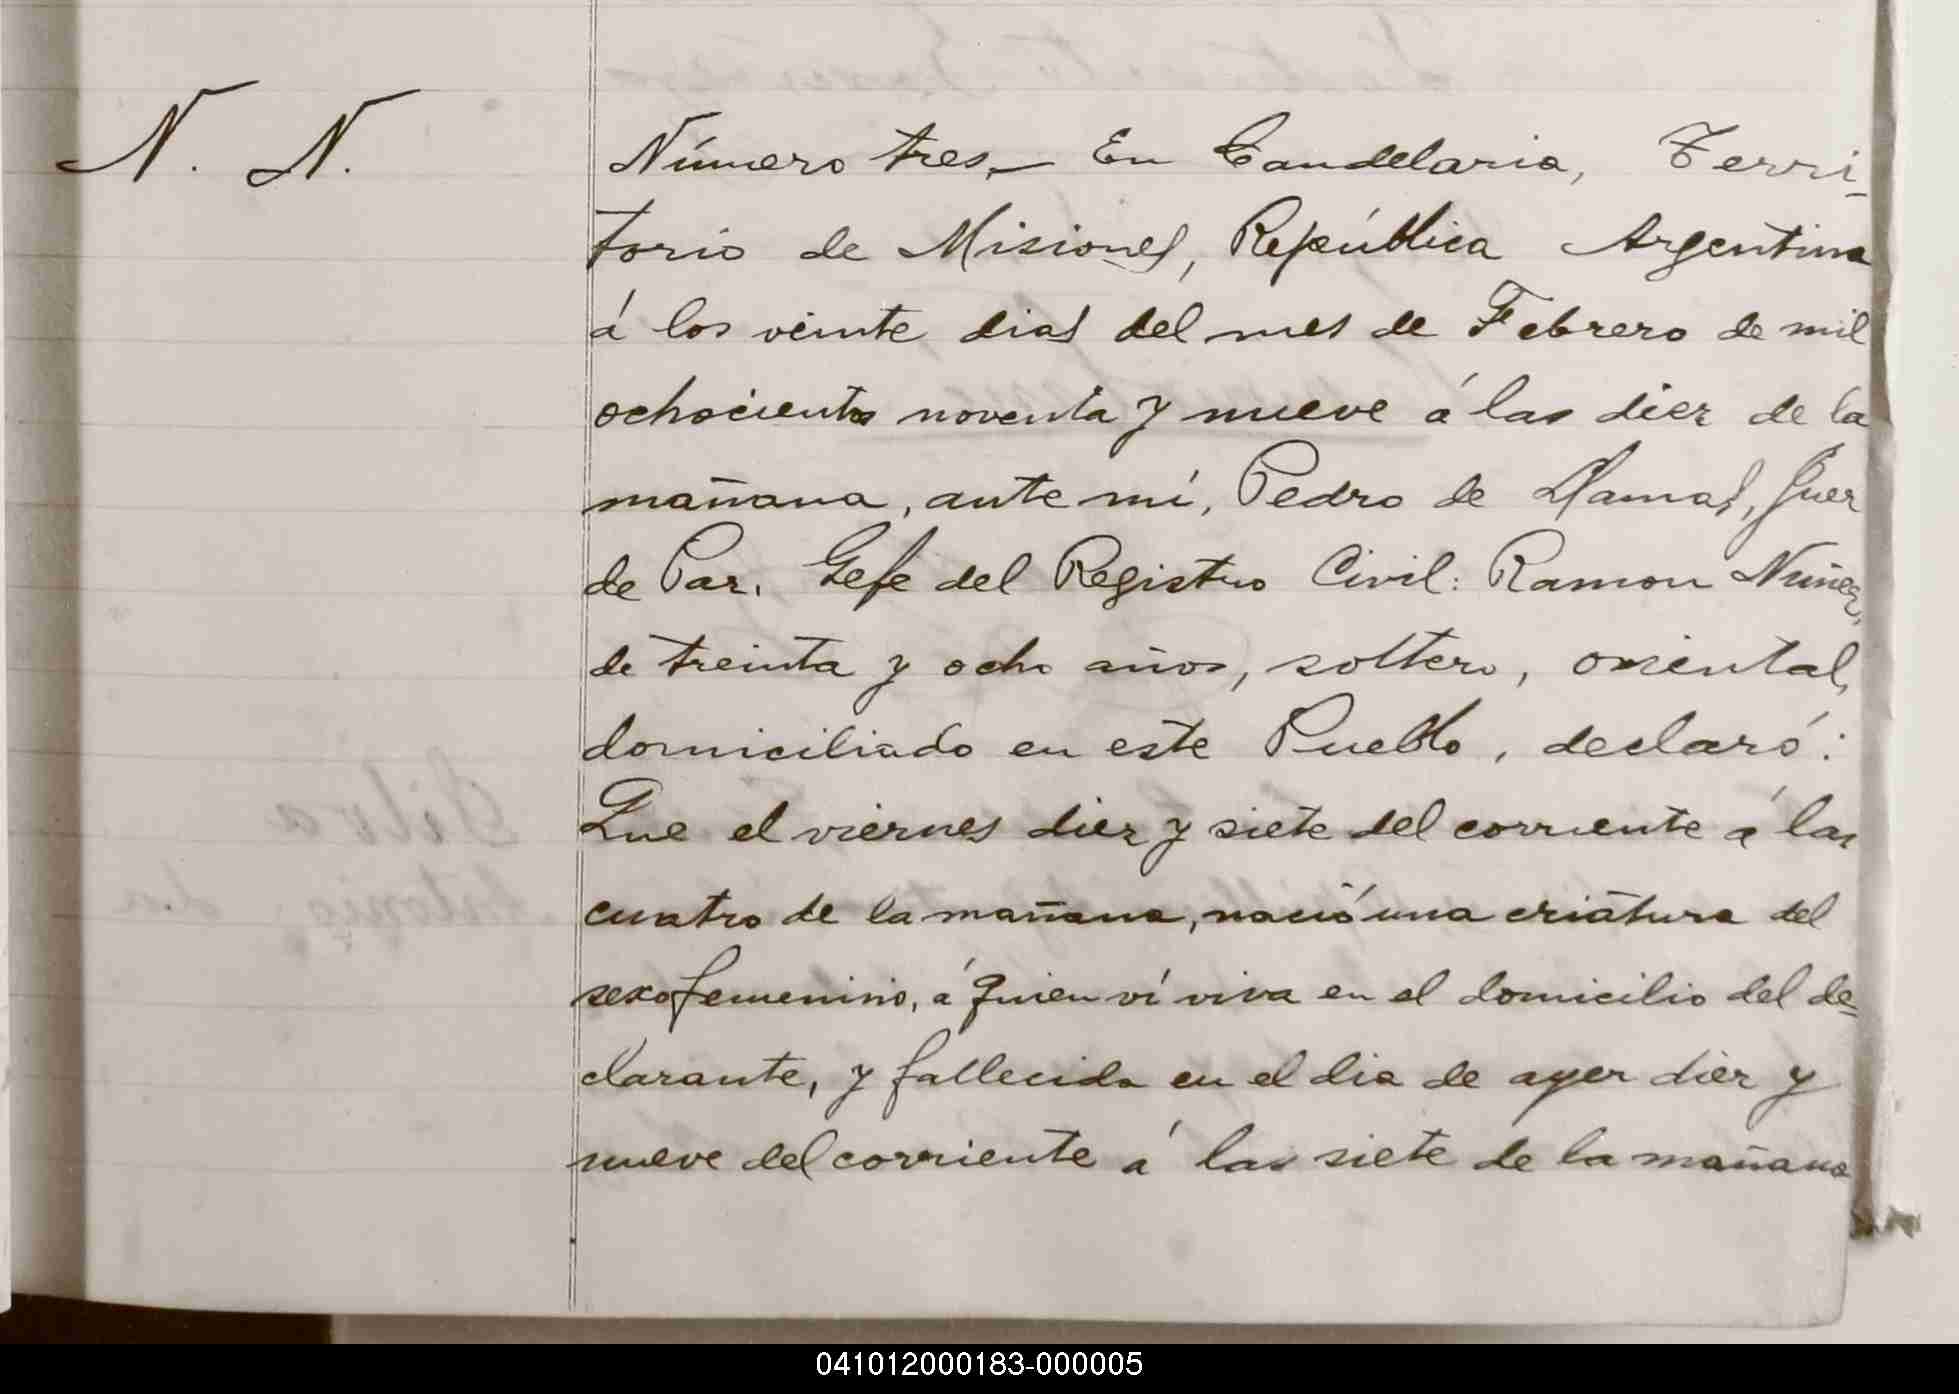 N. N.
Número tres.— En Candelaria, Terri-
torio de Misiones, República Argentina
á los veinte dias del mes de Febrero de mil
ochocientos noventa y nueve á las diez de la
mañana, ante mí, Pedro de Llamas, Juez
de Paz. Gefe del Registro Civil: Ramon Nuñez,
de treinta y ocho años, soltero, oriental,
domiciliado en este Pueblo, declaró:
Que el viernes diez y siete del corriente á las
cuatro de la mañana, nació una criatura del
sexo femenino, á quien ví viva en el domicilio del de-
clarante, y fallecida en el dia de ayer diez y
nueve del corriente á las siete de la mañana
041012000183-000005